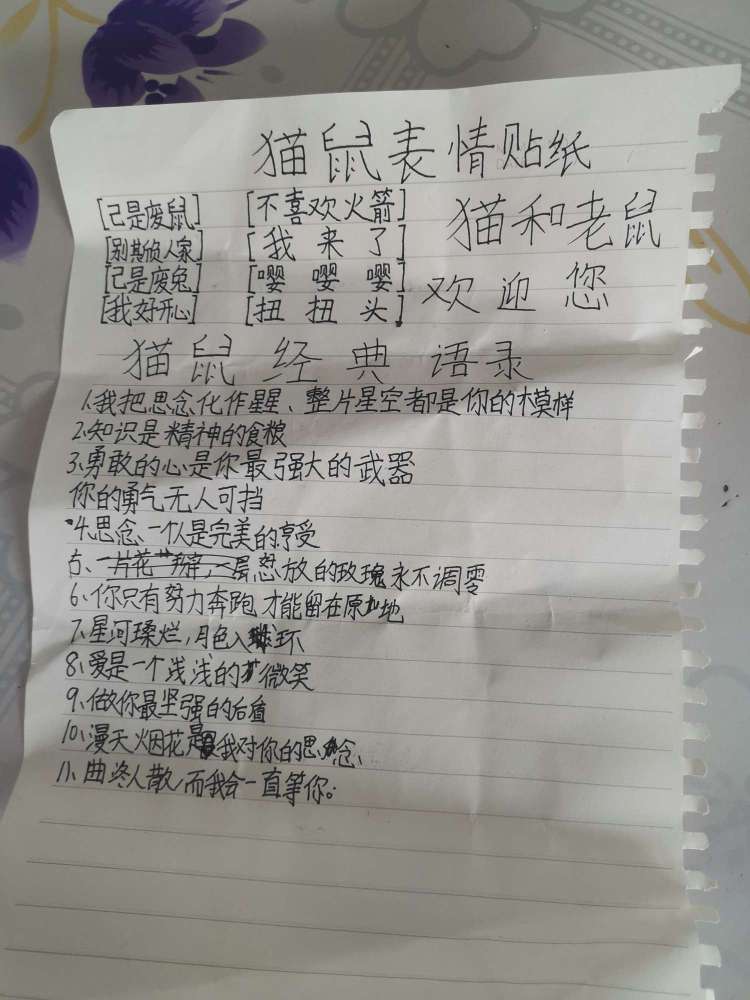 猫鼠表情贴纸
[己是废鼠] [不喜欢火箭]
[别其侦人家] [我来了] 猫和老鼠
[己是废兔] [嘤嘤嘤] 欢迎您
[我好开心] [扭扭头]
猫鼠经典语录
1.我把思念化作星星、整片星空都是你的模样
2.知识是精神的食粮
3.勇敢的心是你最强大的武器
你的勇气无人可挡
4.思念、一个人是完美的享受
5、一片花瓣,一层怒放的玫瑰永不调零
6、你只有努力奔跑才能留在原地
7、星河璨烂,月色入环
8、爱是一个浅浅的微笑
9、做你最坚强的后盾
10、漫天烟花是我对你的思念、
11、曲终人散,而我会一直等你。